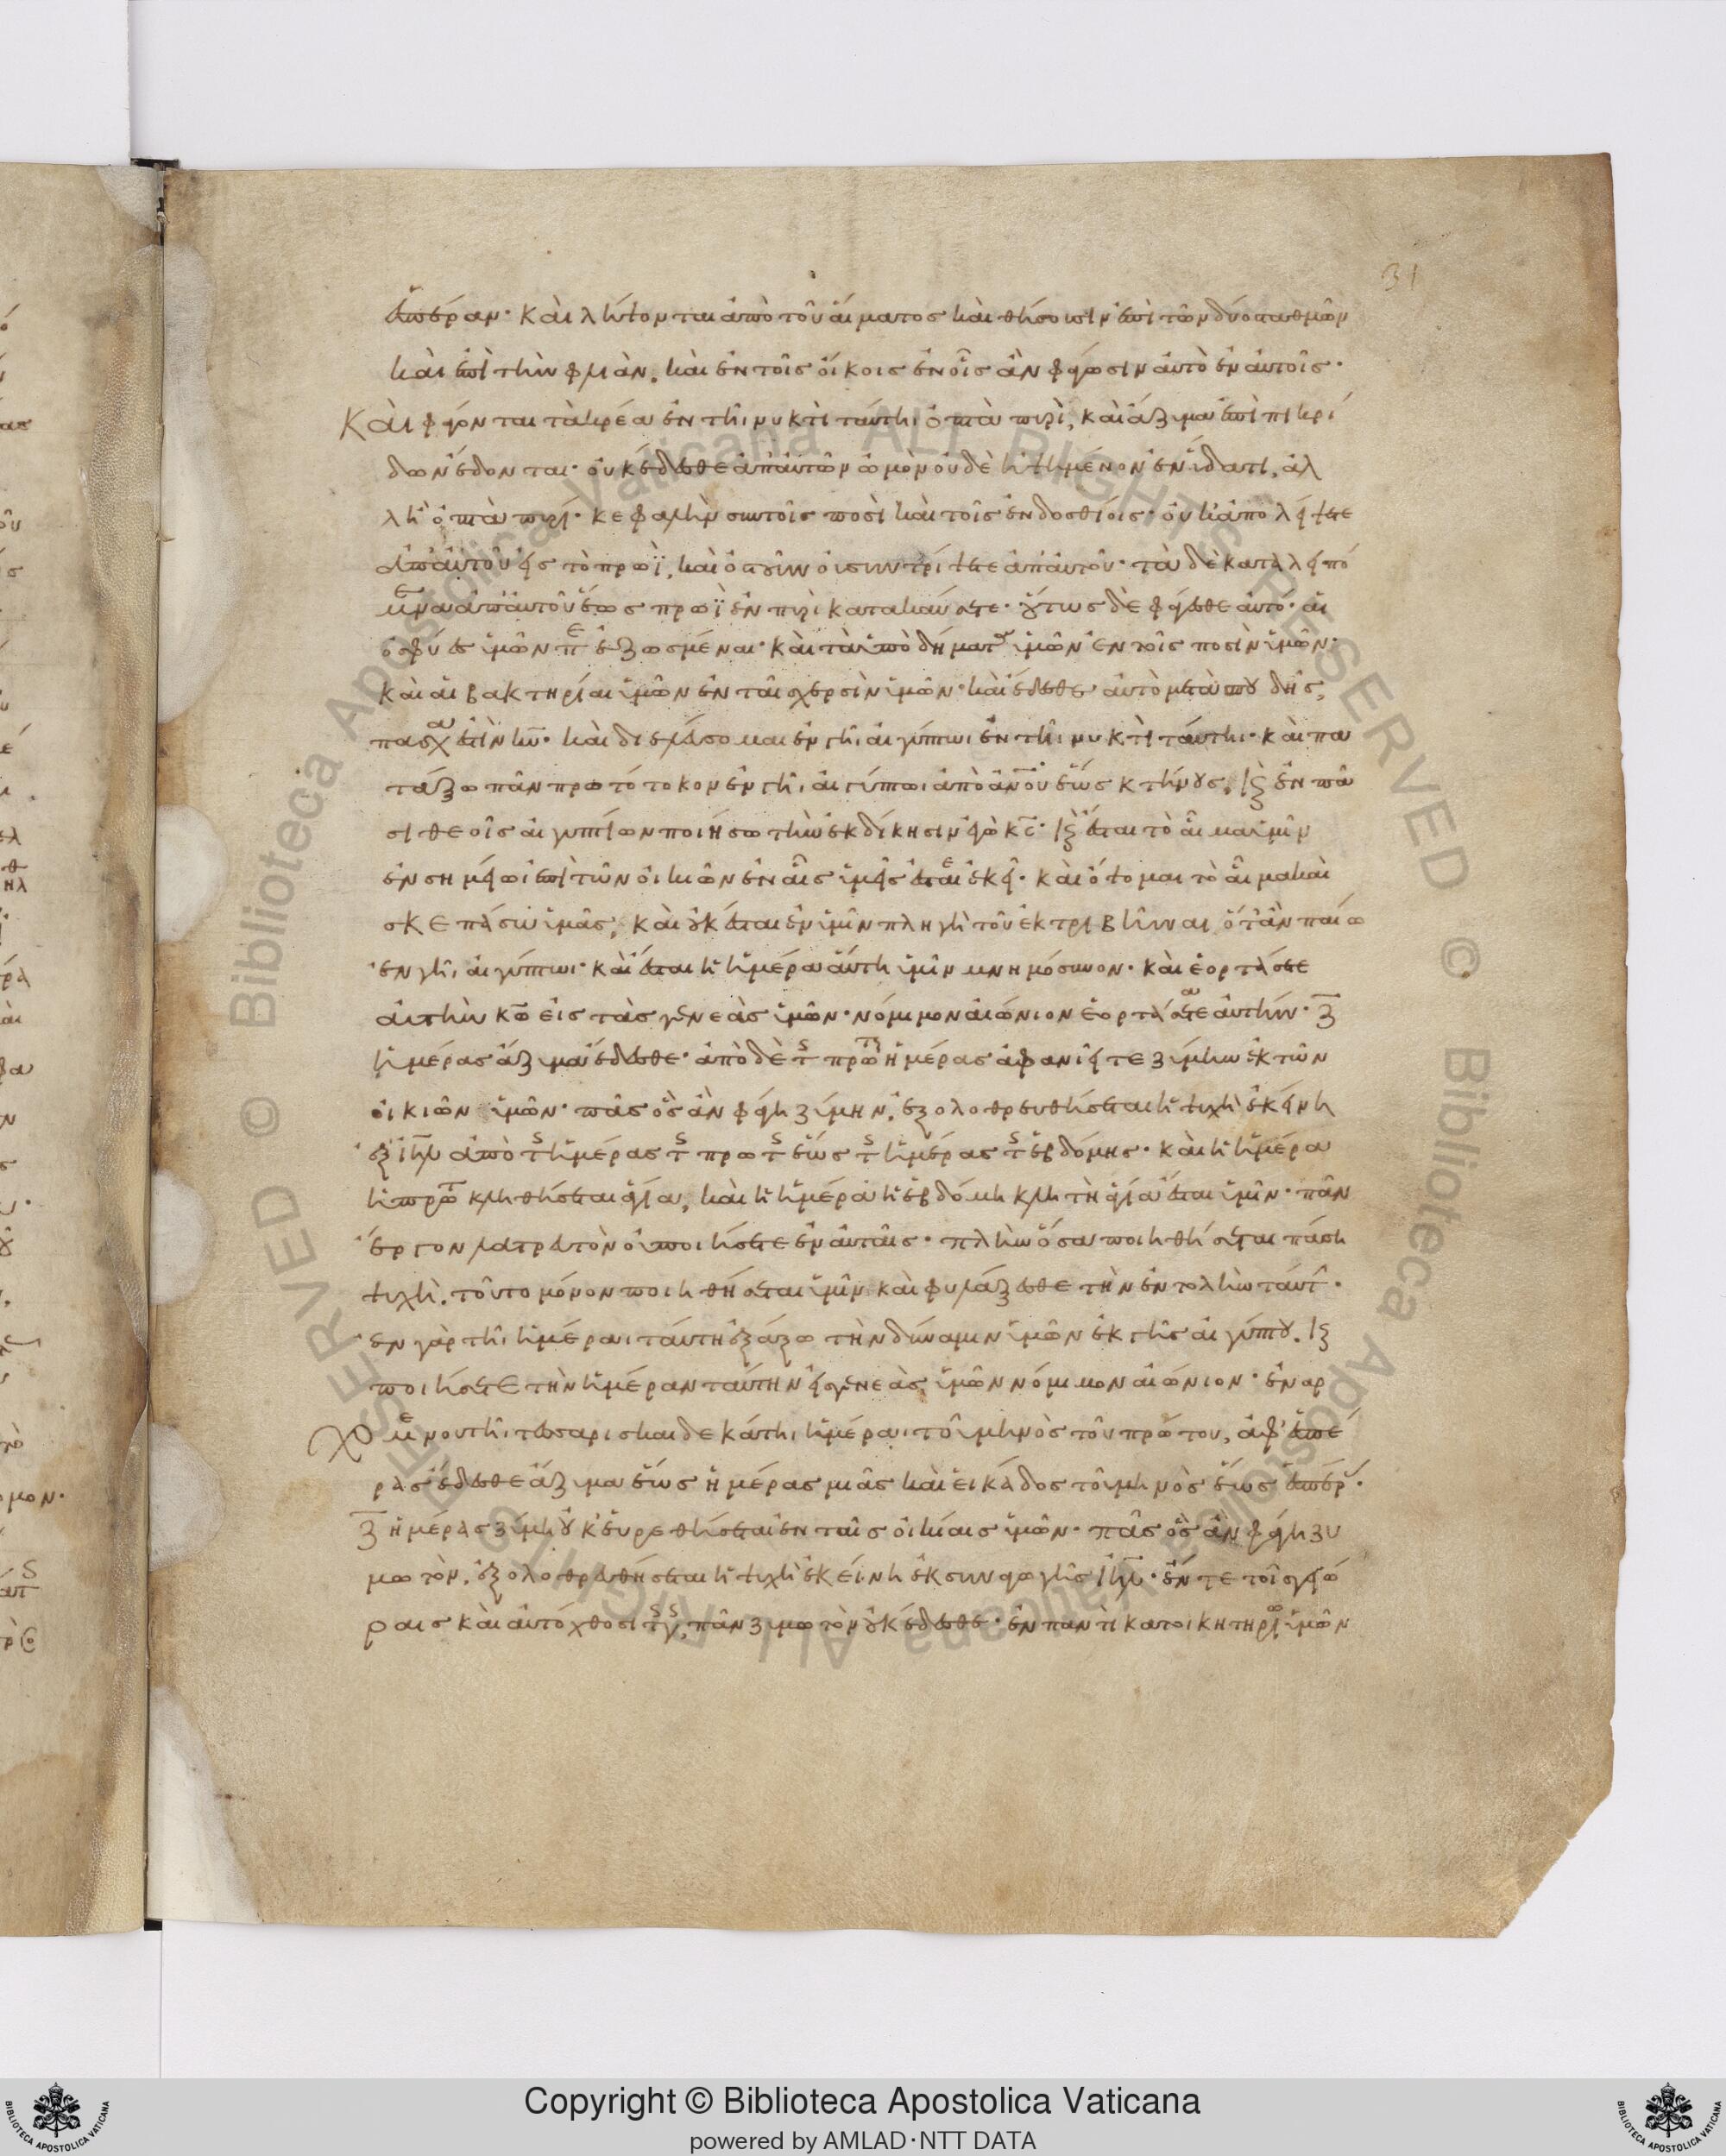 31
ἑσπέραν· καὶ λήψονται ἀπὸ τοῦ αἵματος καὶ θήσουσιν ἐπὶ τῶν δύο σταθμῶν
καὶ ἐπὶ τὴν φλιὰν. καὶ ἐν τοῖς οἴκοις ἐν οἷς ἂν φάγωσιν αὐτὸ ἐν αὐτοῖς·
Καὶ φάγονται τὰ κρέα ἐν τῆι νυκτὶ ταύτηι ὀπτὰ πυρὶ, καὶ ἄζυμα ἐπὶ πικρί
δων ἔδονται· οὐκ ἔδεσθε ἀπ' αὐτῶν ὠμὸν οὐδὲ ἡψημένον ἐν ὕδατι, ἀλ
λ' ἢ ὀπτὰ πυρί· κεφαλὴν σὺν τοῖς ποσὶ καὶ τοῖς ἐνδοσθίοις· οὐκ ἀπολείψετε
ἀπ' αὐτοῦ εἰς τὸ πρωῒ, καὶ ὀστοῦν οὐ συντρίψετε ἀπ' αὐτοῦ· τὰ δὲ καταλειπό
μενα ἀπ' αὐτοῦ ἕως πρωῒ ἐν πυρὶ κατακαύσετε· οὕτως δὲ φάγεσθε αὐτό· αἱ
ὀσφύες ὑμῶν περιεζωσμέναι· καὶ τὰ ὑποδήματα ὑμῶν ἐν τοῖς ποσὶν ὑμῶν·
καὶ αἱ βακτηρίαι ὑμῶν ἐν ταῖς χερσὶν ὑμῶν· καὶ ἔδεσθε αὐτὸ μετὰ σπουδῆς,
πασχα ἐστὶν κω̅· καὶ διελεύσομαι ἐν γῆι αἰγύπτωι ἐν τῆι νυκτὶ ταύτηι· καὶ πα
τάξω πᾶν πρωτότοκον ἐν γῆι αἰγύπτωι ἀπὸ ανου̅ ἕως κτήνους. καὶ ἐν πᾶ
σι θεοῖς αἰγυπτίων ποιήσω τὴν ἐκδίκησιν ἐγὼ κς̅· καὶ ἔσται τὸ αἷμα ὑμῖν
ἐν σημείωι ἐπὶ τῶν οἰκιῶν ἐν αἷς ὑμεῖς ἐσται ἐκεῖ· καὶ ὄψομαι τὸ αἷμα καὶ
σκεπάσω ὑμᾶς, καὶ οὐκ ἔσται ἐν ὑμῖν πληγὴ τοῦ ἐκτριβῆναι ὅταν παίω
ἐν γῆι αἰγύπτωι· καὶ ἔσται ἡ ἡμέρα αὕτη ὑμῖν μνημόσυνον· καὶ ἑορτάσετε
αὐτὴν κω̅ εἰς τὰς γενεὰς ὑμῶν· νόμιμον αἰώνιον ἑορτάσατε αὐτήν· ζ̅
ἡμέρας ἄζυμα ἔδεσθε· ἀπὸ δὲ τῆς πρώτης ἡμέρας ἀφανιεῖτε ζύμην ἐκ τῶν
οἰκιῶν ὑμῶν· πᾶς ὃς ἂν φάγη ζύμην. ἐξολοθρευθήσεται ἡ ψυχὴ ἐκείνη
ἐξ ιηλ̅ ἀπὸ τῆς ἡμέρας τῆς πρώτης ἕως τῆς ἡμέρας τῆς ἑβδόμης· καὶ ἡ ἡμέρα
ἡ πρώτη κληθήσεται ἁγία, καὶ ἡ ἡμέρα ἡ ἑβδόμη κλητὴ ἁγία ἔσται ὑμῖν· πᾶν
ἔργον λατρευτὸν οὐ ποιήσετε ἐν αὐταῖς· πλὴν ὅσα ποιηθήσεται πάση
ψυχὴ. τοῦτο μόνον ποιηθήσεται ὑμῖν καὶ φυλάξεσθε τὴν ἐντολὴν ταύτην·
ἐν γὰρ τῆι ἡμέραι ταύτη ἐξάξω τὴν δύναμιν ὑμῶν ἐκ γῆς αἰγύπτου. καὶ
ποιήσετε τὴν ἡμέραν ταύτην εἰς γενεὰς ὑμῶν νόμιμον αἰώνιον· ἐναρ
χομένου τῆι τεσσαρισκαιδεκάτηι ἡμέραι τοῦ μηνὸς τοῦ πρώτου, ἀφ' ἑσπέ
ρας ἔδεσθε ἄζυμα ἕως ἡμέρας μιᾶς καὶ εἰκάδος τοῦ μηνὸς ἕως ἑσπέρας·
ζ̅ ἡμέρας ζύμη οὐκ εὑρεθήσεται ἐν ταῖς οἰκίαις ὑμῶν· πᾶς ὃς ἂν φάγη ζυ
μωτόν. ἐξολοθρευθήσεται ἡ ψυχὴ ἐκείνη ἐκ συναγωγῆς ιηλ̅· ἔν τε τοῖς γειώ
ραις καὶ αὐτόχθοσι τῆς γῆς, πᾶν ζυμωτὸν οὐκ ἔδεσθε· ἐν παντὶ κατοικητηρίω ὑμῶν
Copyright © Biblioteca Apostolica Vaticana
powered by AMLAD·NTT DATA